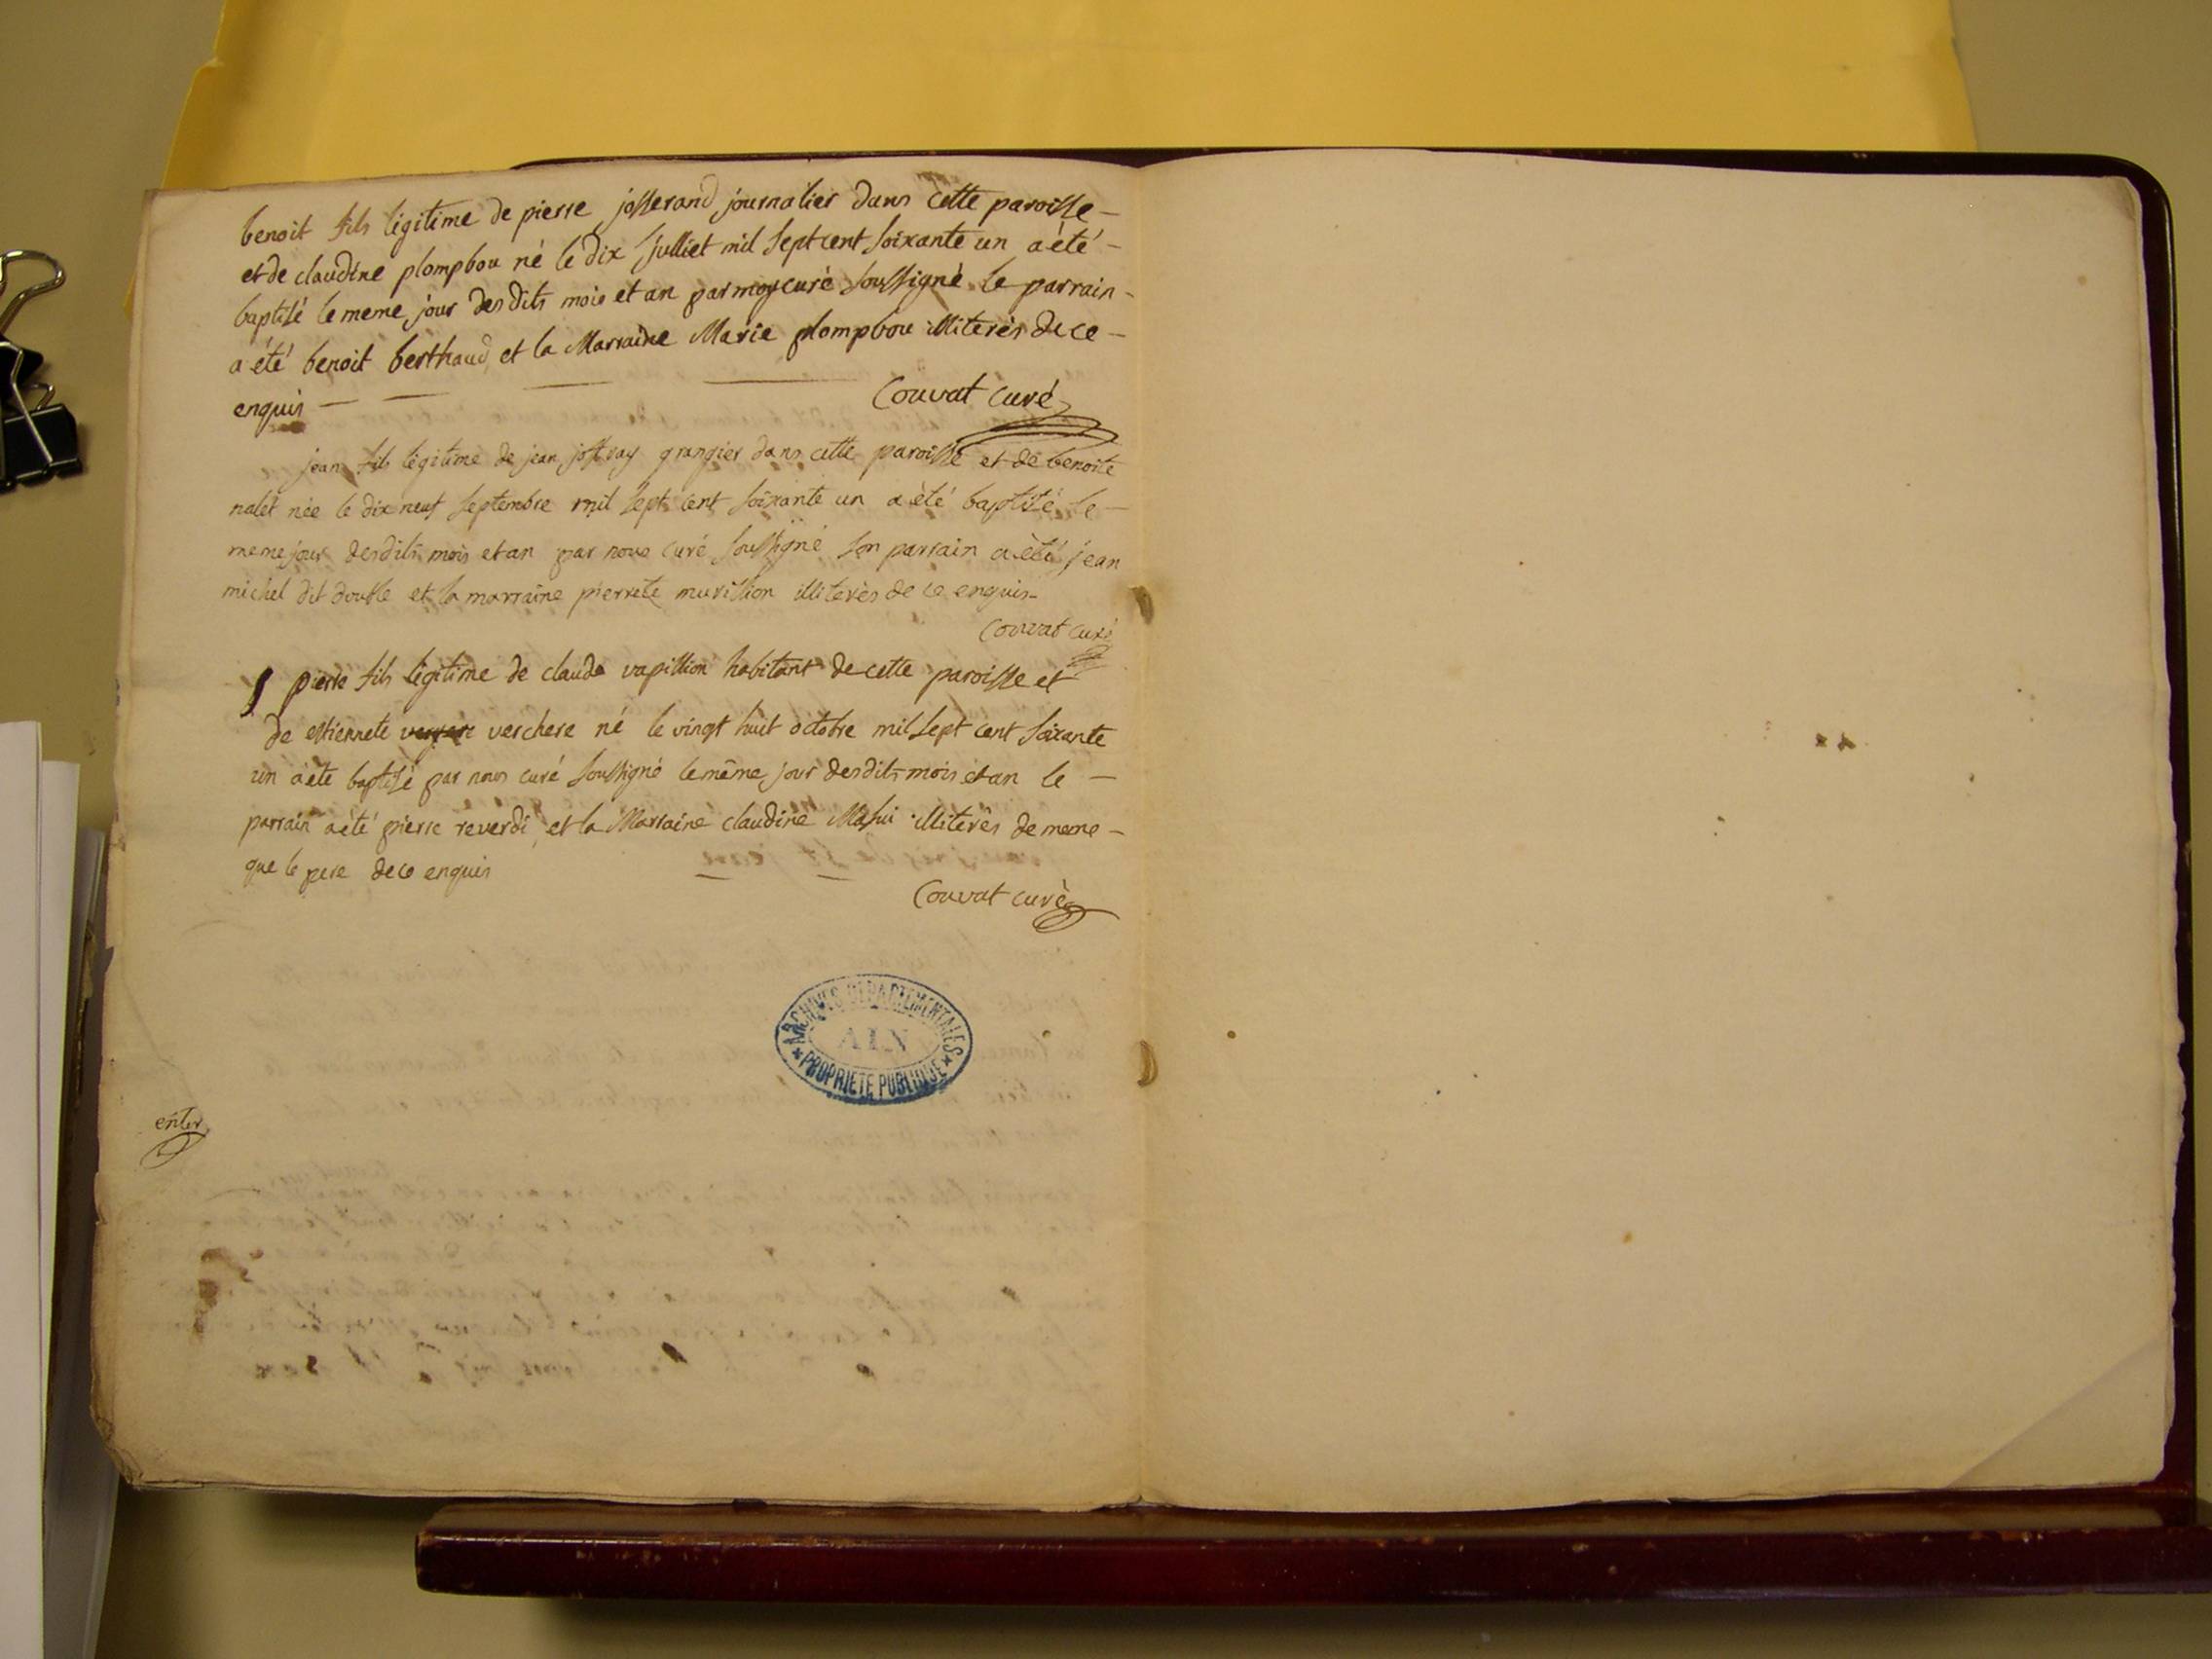 benoit fils légitime de pierre josserand journalier dans cette paroisse -
et de claudine plompbou né le dix julliet mil sept cent soixante un a été -
baptisé le meme jour des dits mois et an par moy curé soussigné le parrain -
a été benoit berthaud et la Marraine Marie plompbou illiterés de ce -
enquis - - - -
Couvat curé
jean fils légitime de jean joffray grangier dans cette paroisse et de benoite
nalet née le dix neuf septembre mil sept cent soixante un a été baptisé le -
meme jour desdits mois et an par nous curé soussigné son parrain a été jean
michel dit double et la marraine pierrete murission illiterés de ce enquis -
Couvat curé
pierre fils légitime de claude vapillion habitant de cette paroisse et
de estiennete verchere né le vingt huit octobre mil sept cent soixante
un a été baptisé par nous curé soussigné le même jour desdits mois et an le -
parrain a été pierre reverdi, et la Marraine claudine illiterés de meme -
que le pere de ce enquis - -
Couvat curé
ARCHIVES DEPARTEMENTALES
AIN
PROPRIETE PUBLIQUE